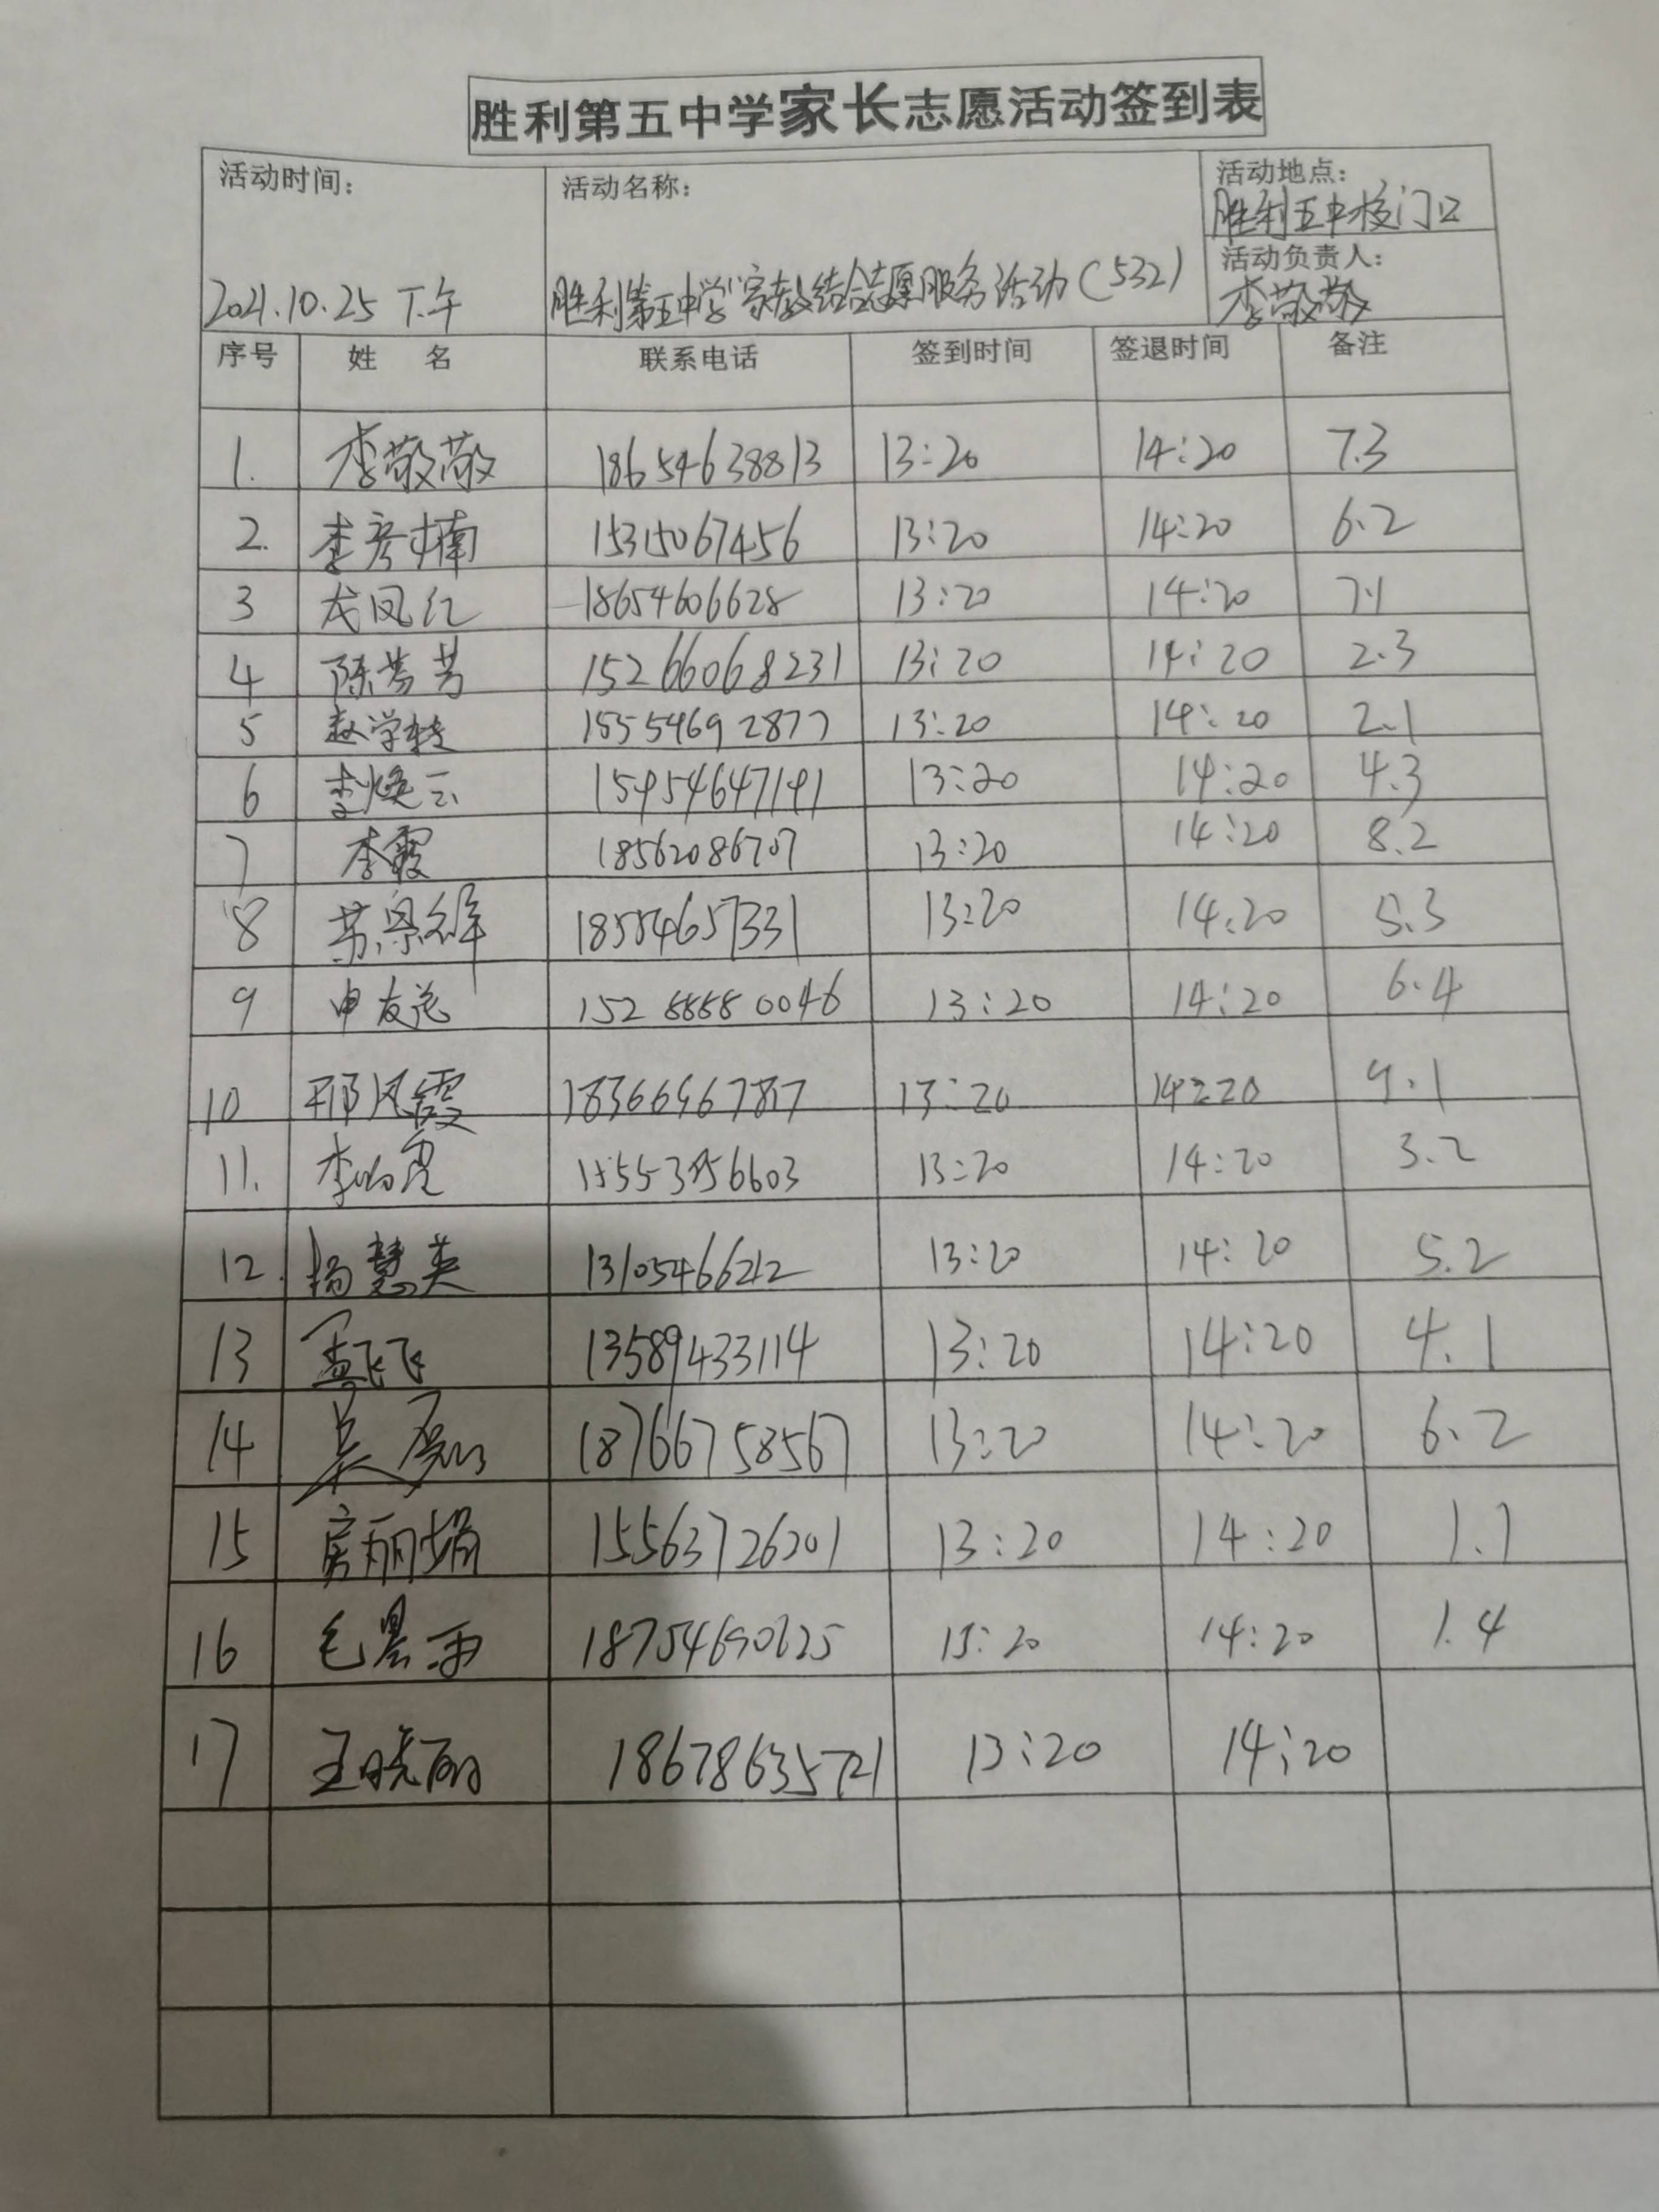 胜利第五中学家长志愿活动签到表
活动时间：
2021.10.25 下午
活动名称：
胜利第五中学"家教结合志愿服务活动（532）
活动地点：
胜利五中校门口
活动负责人：
李敬敬
序号 姓 名 联系电话 签到时间 签退时间 备注
1. 李敬敬 18654638813 13:20 14:20 7.3
2. 李彦楠 15315067456 13:20 14:20 6.2
3 龙凤红 18654606628 13:20 14:20 7.1
4 陈芳芳 15266068231 13:20 14:20 2.3
5 赵学 15554692877 13:20 14:20 2.1
6 李焕云 15954647191 13:20 14:20 4.3
7 李霞 18562086707 13:20 14:20 8.2
8 18554657331 13:20 14:20 5.3
9 申友 152 8888 0046 13:20 14:20 6.4
10 邢凤霞 13:20 14:20 9.1
11. 李 13:20 14:20 3.2
12. 杨慧英 13105466212 13:20 14:20 5.2
13 孟飞飞 13589433114 13:20 14:20 4.1
14 吴 18766758567 13:20 14:20 6.2
15 房丽娟 15563726201 13:20 14:20 1.1
16 毛 18754690625 13:20 14:20 1.4
17 王晓丽 18678635721 13:20 14:20